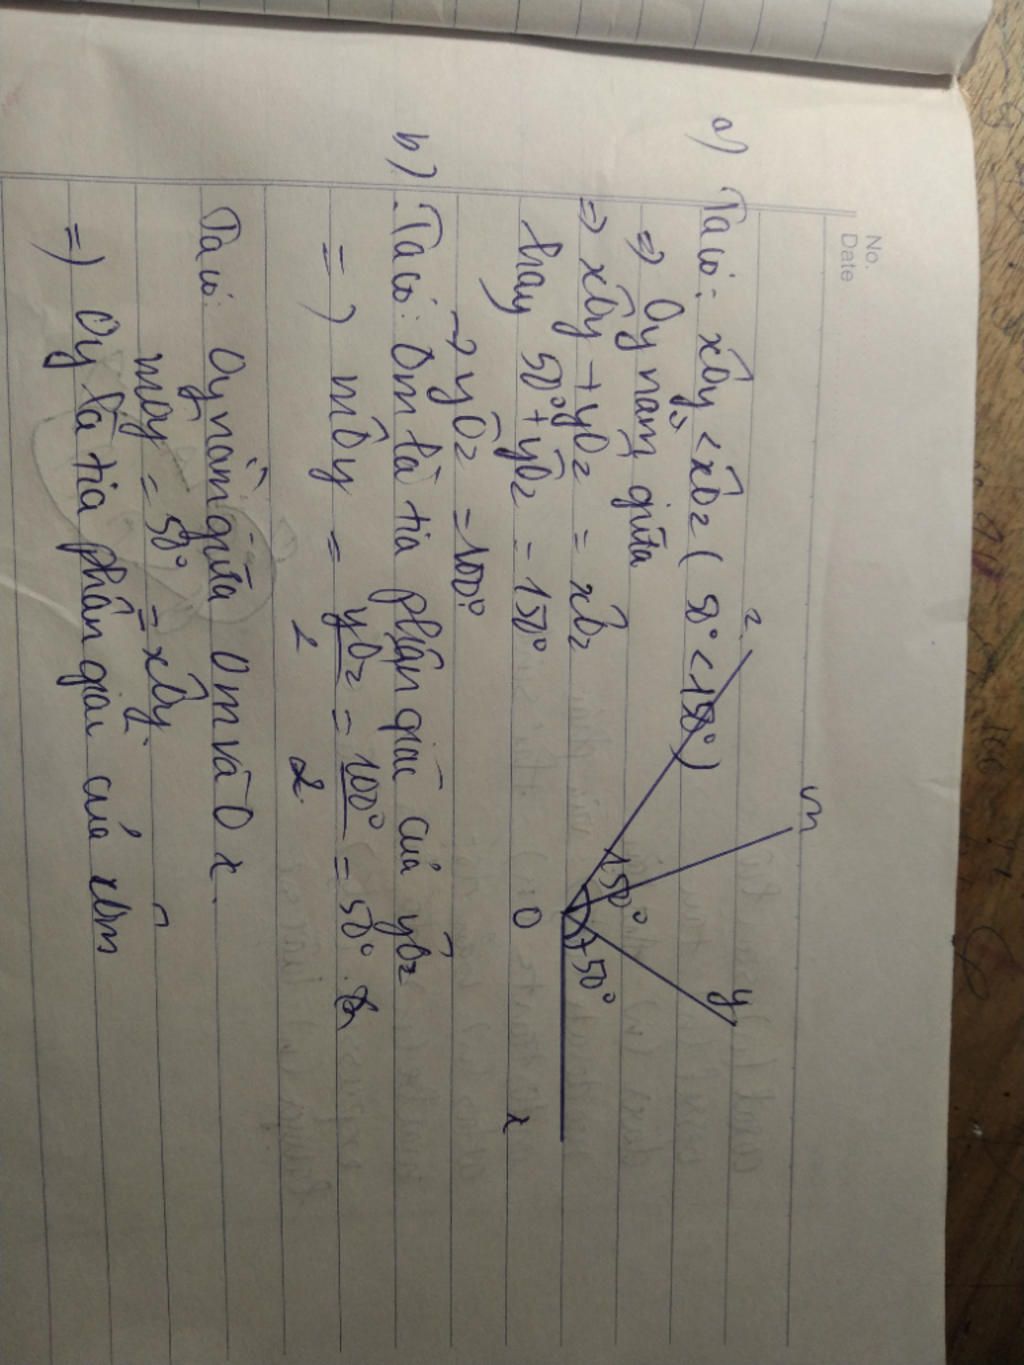 No.
Date
a) Ta có: xÔy < xÔz ( 50° < 150° )
=> Oy nằm giữa
=> xÔy + yÔz = xÔz
hay 50° + yÔz = 150°
→ yÔz = 100°.
b). Ta có: Om là tia phân giác của yÔz
=> mÔy = yÔz/2 = 100°/2 = 50°.
Ta có: Oy nằm giữa Om và Ox.
mÔy = 50° = xÔy.
=) Oy là tia phân giác của xOm
z
m
y
150°
50°
O
x